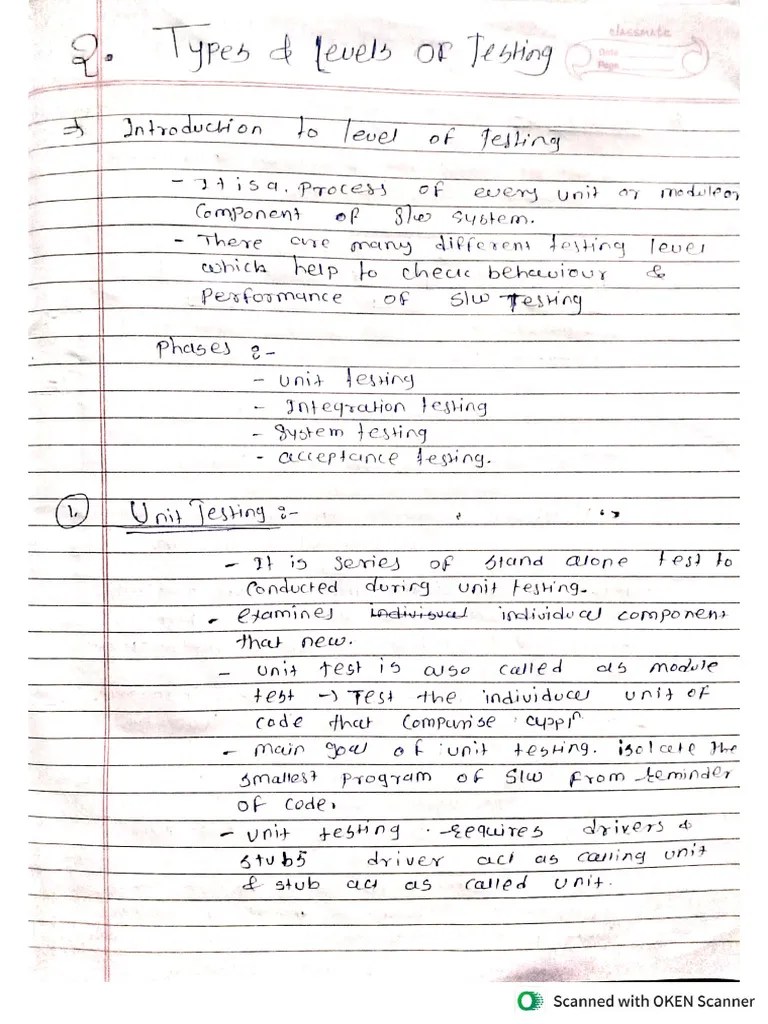 classmate
Date
Page
2. Types & Levels of Testing
⇒ Introduction to level of Testing
- It is a. process of every unit or module or
component of S/w system.
- There are many different testing level
which help to check behaviour &
performance of S/w Testing
Phases :-
- unit testing
- Integration testing
- System testing
- acceptance testing.
1. Unit Testing :-
- It is series of stand alone test to
conducted during unit testing.
- examines individual component
that new.
- unit test is also called as module
test → Test the individual unit of
code that compurise appln
- main goal of unit testing. isolcate the
smallest program of S/w from reminder
of code.
- unit testing requires drivers &
stubs driver act as calling unit
& stub act as called unit.
Scanned with OKEN Scanner